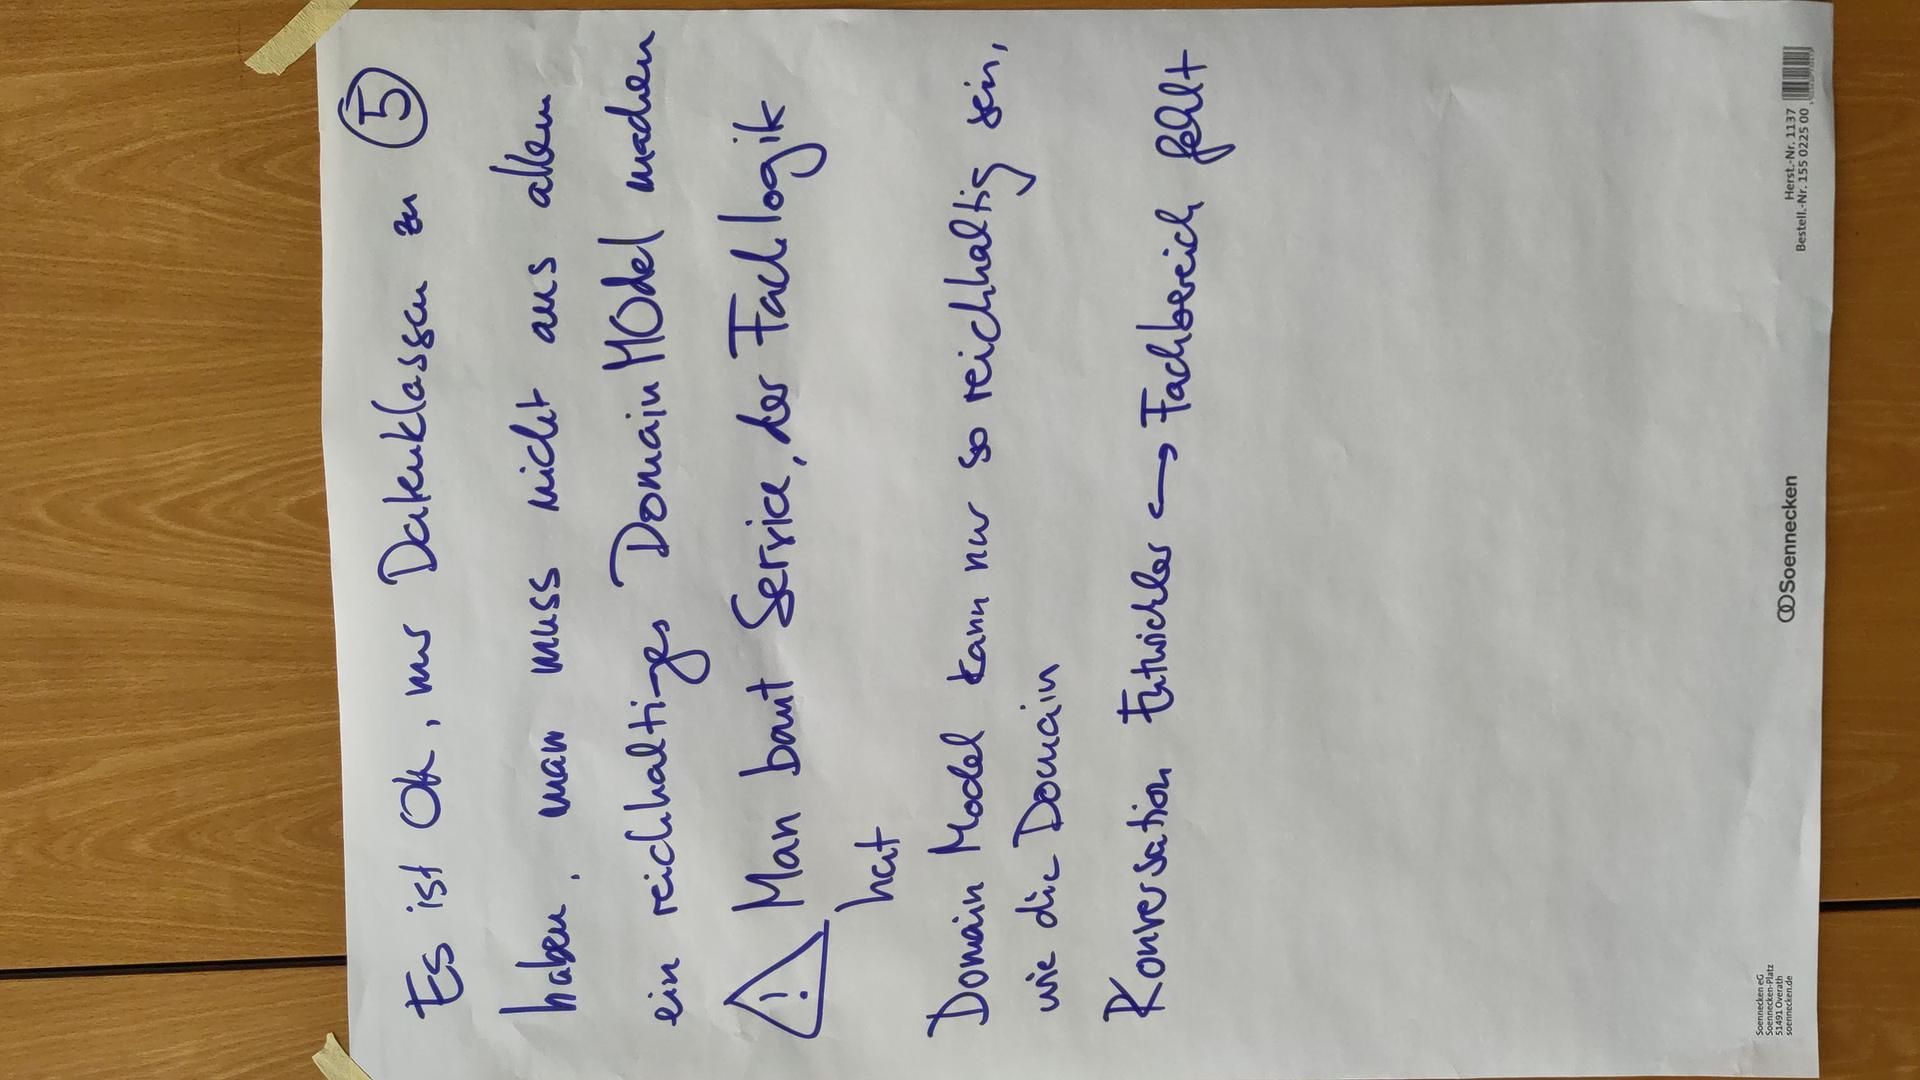 Es ist Ok, nur Datenklassen zu ⑤
haben, man muss nicht aus allem
ein reichhaltiges Domain MOdel machen
⚠ Man baut Service, der Fachlogik
hat
Domain Model kann nur so reichhaltig sein,
wie die Domain
Konversation Entwickler ⟷ Fachbereich fehlt
Soennecken eG
Soennecken-Platz
51491 Overath
soennecken.de
Soennecken
Herst.-Nr. 1137
Bestell.-Nr. 155 0225 00